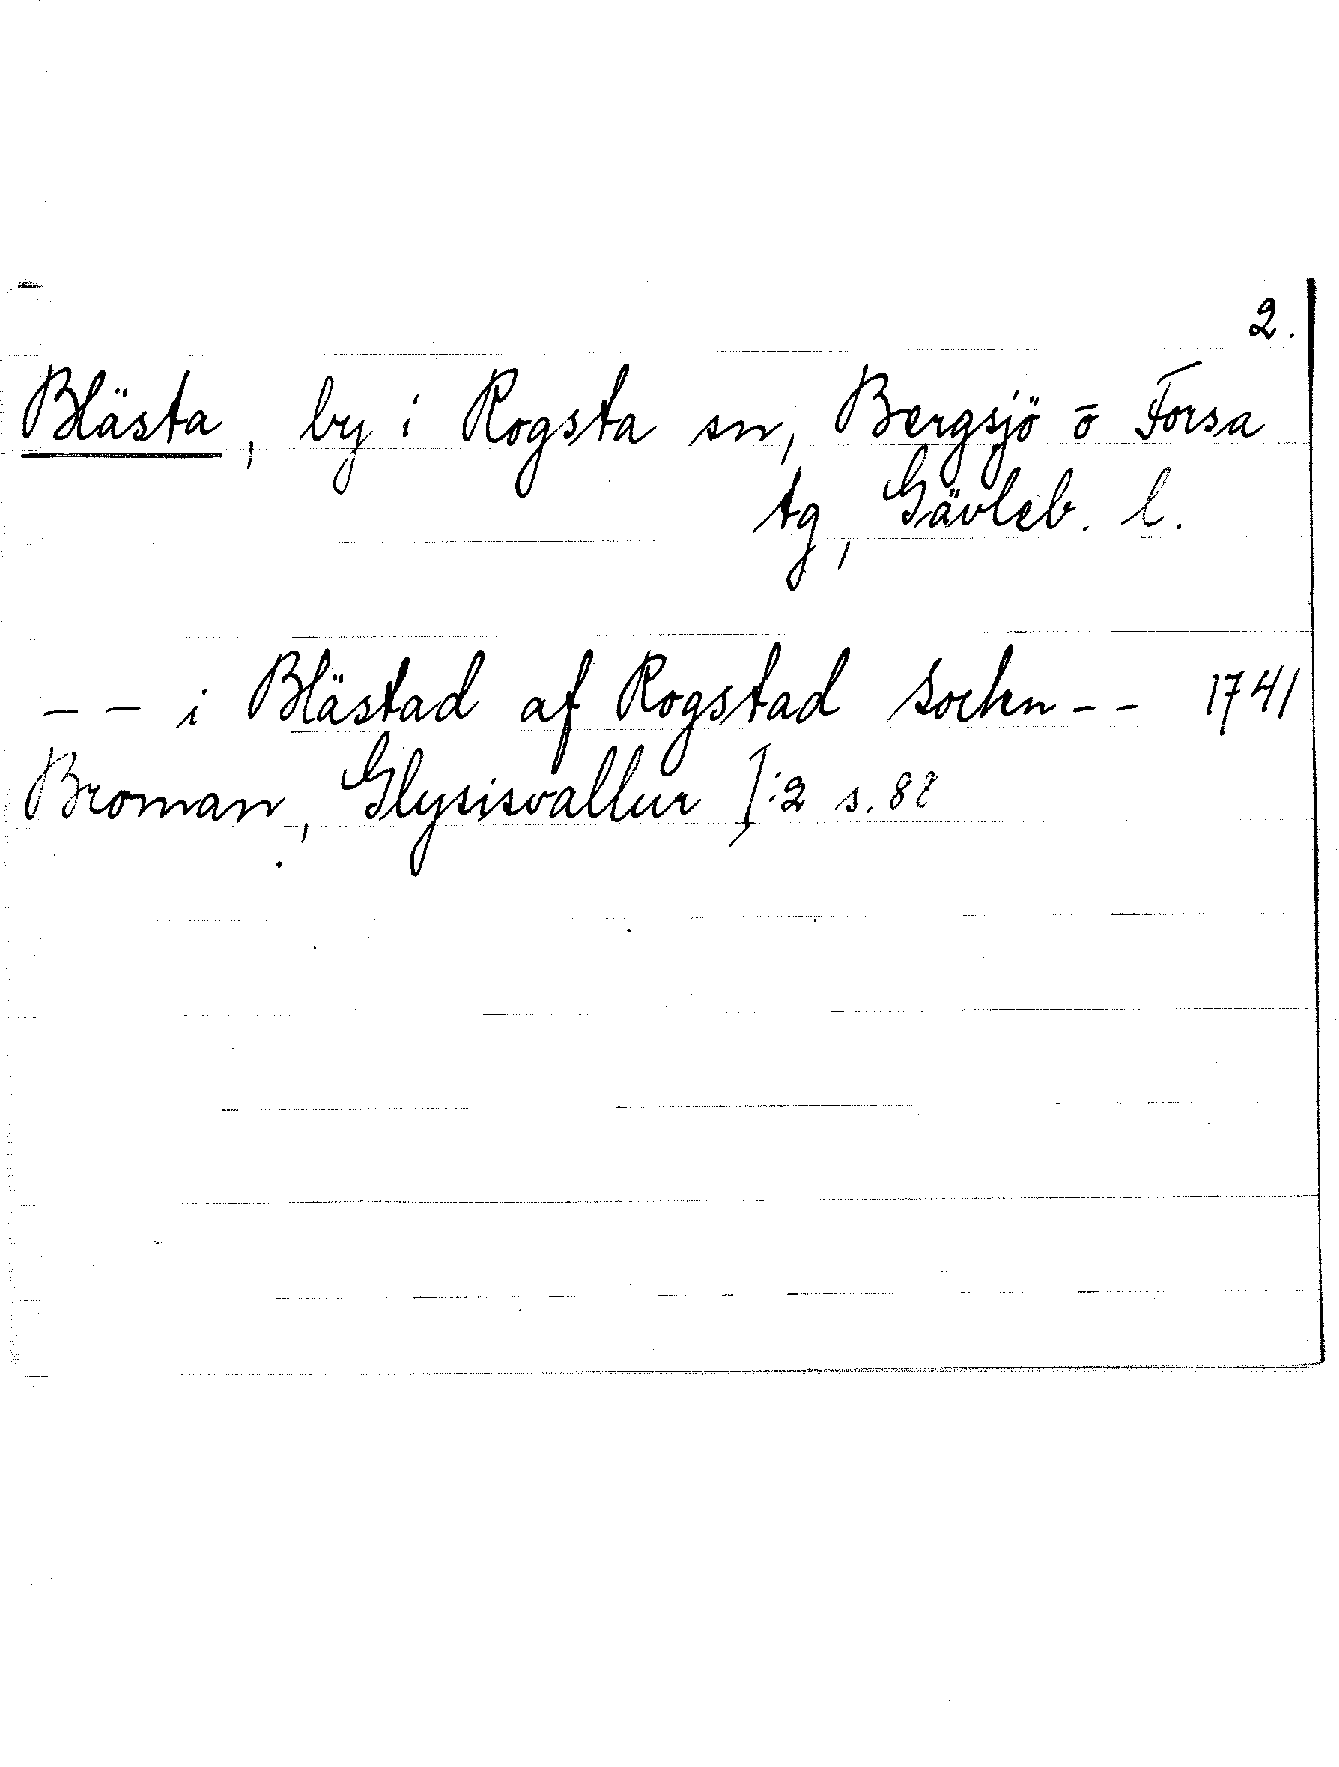 2.
Blästa, by i Rogsta sn, Bergsjö o Forsa
tg, Gävleb. l.
-- i Blästad af Rogstad sockn -- 1741
Broman, Glysisvallur I:2 s. 88